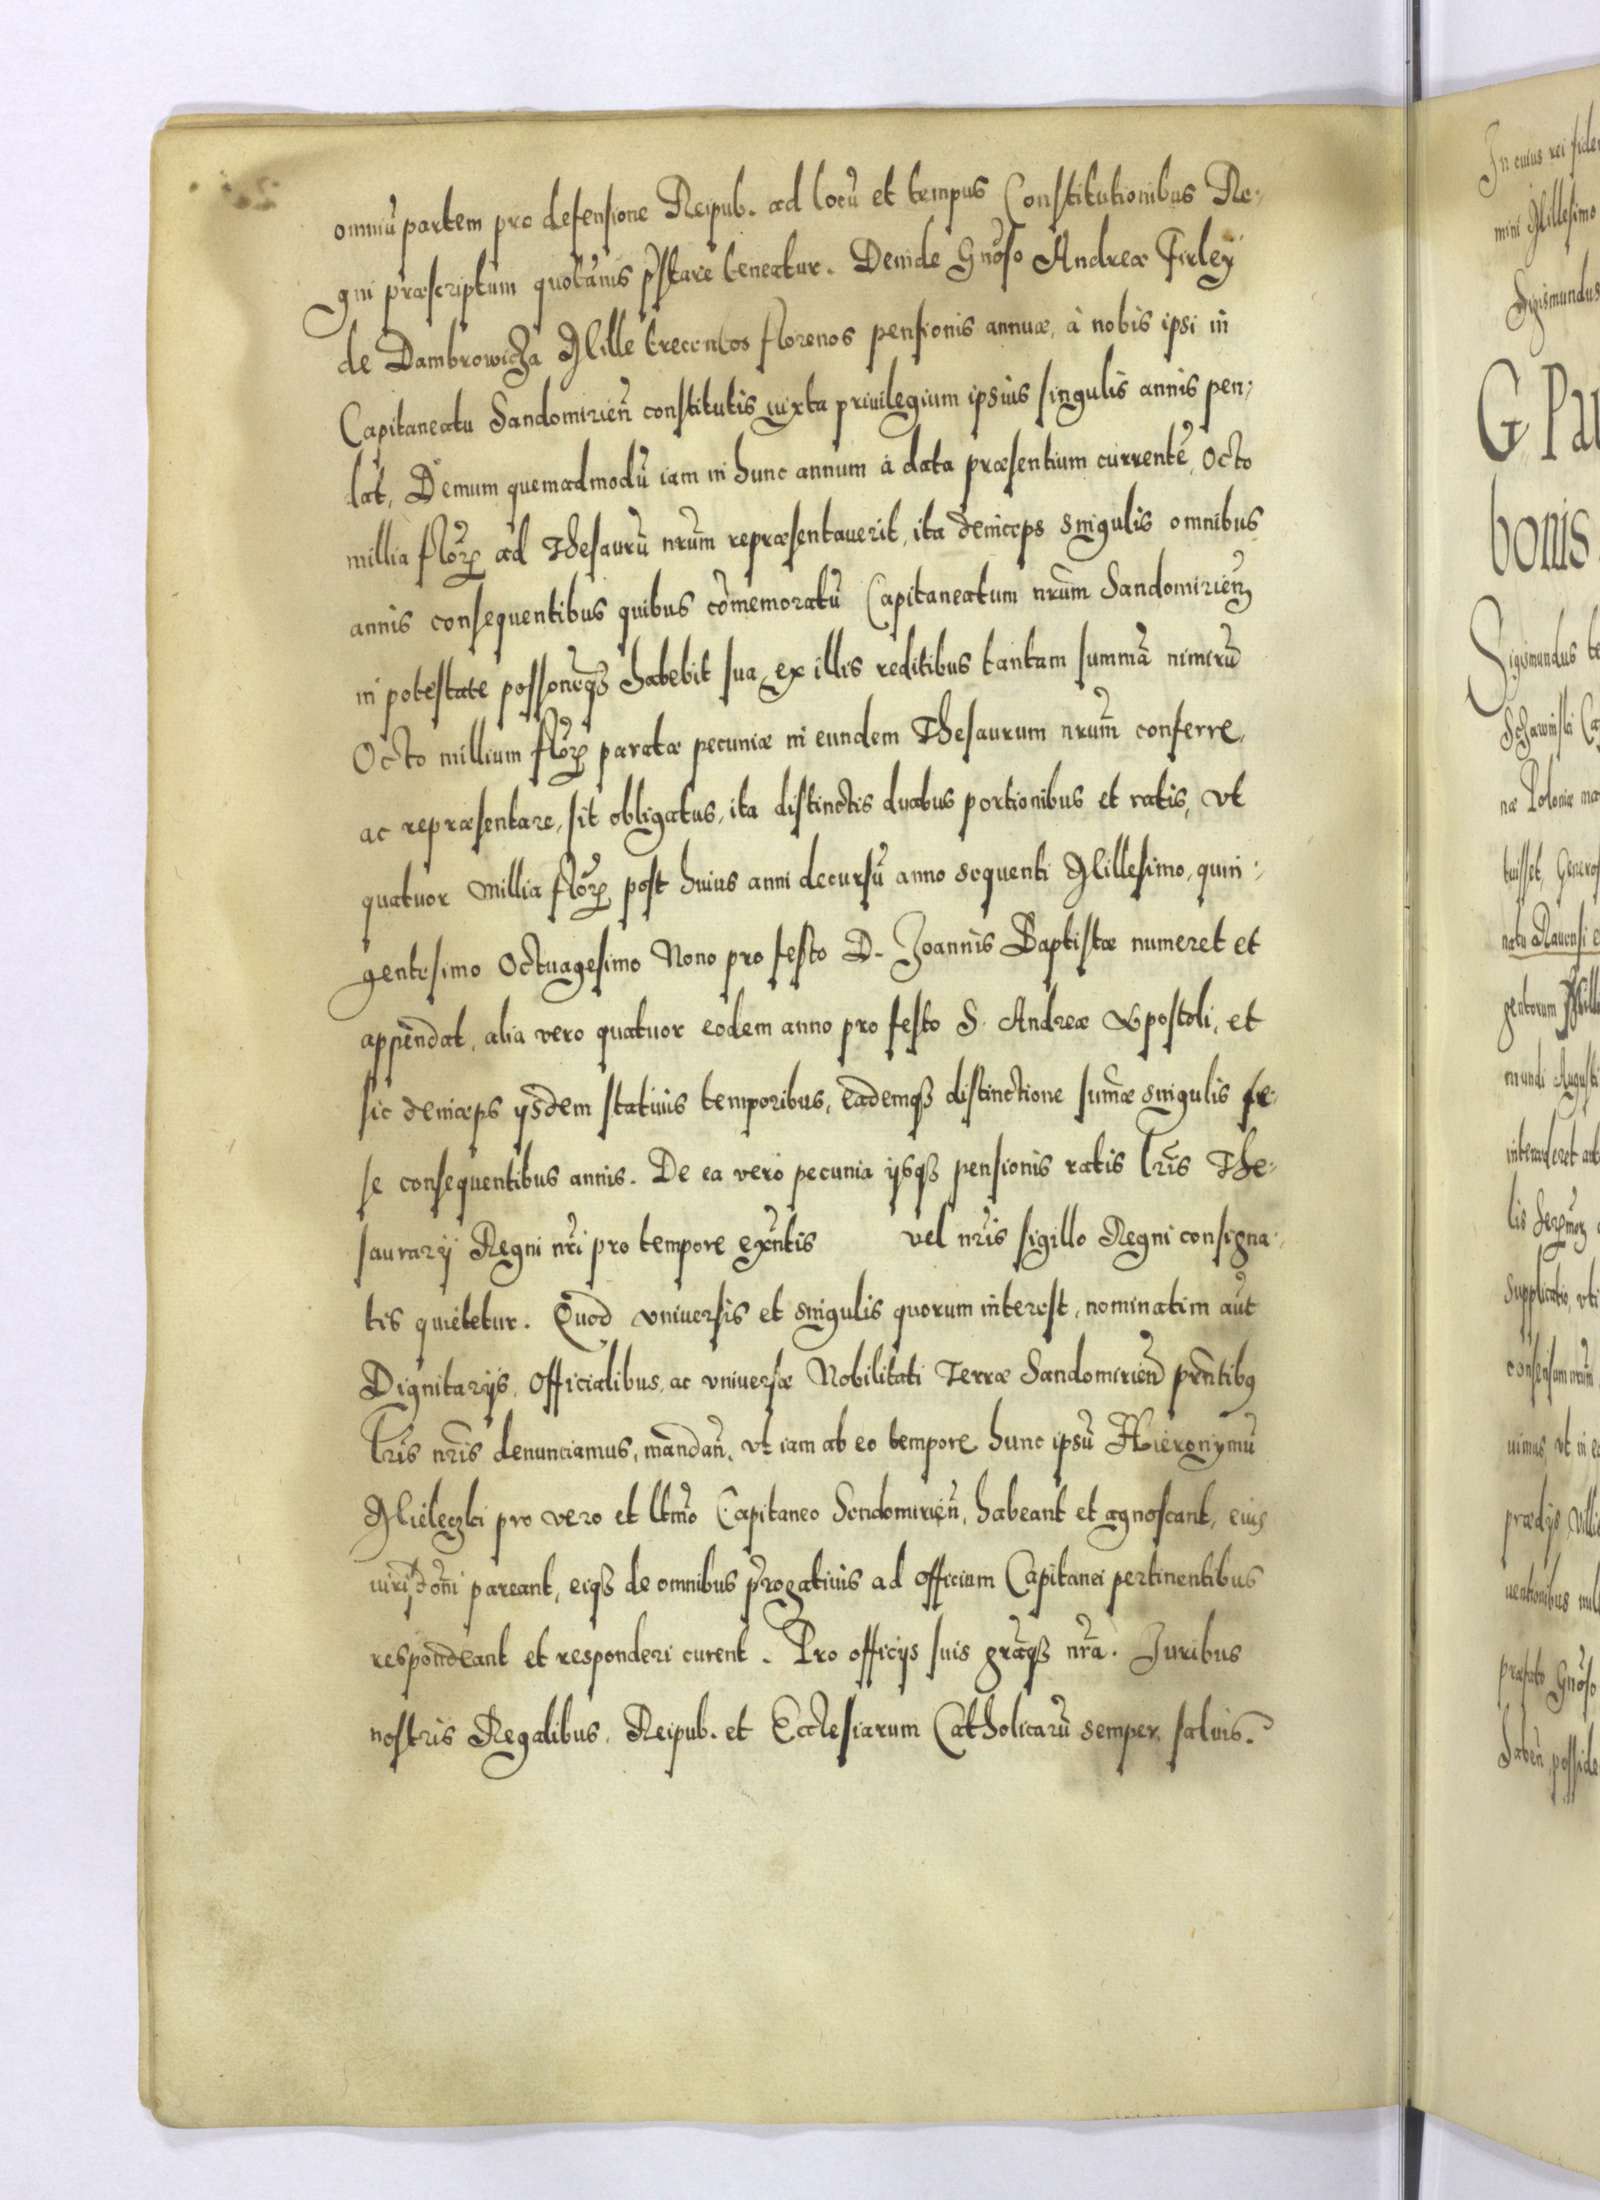 omniũ partem pro defensione Reipub. ad locũ et tempus Constitutionibus Re-
gni præscriptum quotãnis p̃stare teneatur. Deinde Gñoso Andreæ Firley
de Dambrowicza Mille trecentos florenos pensionis annuæ, à nobis ipsi in
Capitaneatu Sandomirieñ constitutis iuxta priuilegium ipsius singulis annis pen-
dat, Demum quemadmodũ iam in hunc annum à data præsentium currentẽ, Octo
millia flõr ad Thesaurũ nrũm repræsentauerit, ita deinceps singulis omnibus
annis consequentibus quibus cõmemoratũ Capitaneatum nrũm Sandomirieñ
in potestate possoneq̃ habebit sua, ex illis reditibus tantam summã nimirũ
Octo millium flõr paratæ pecuniæ in eundem Thesaurum nrũm conferre,
ac repræsentare, sit obligatus, ita distinctis duabus portionibus et ratis, vt
quatuor millia flõr post huius anni decursũ anno sequenti Millesimo, quin-
gentesimo Octuagesimo Nono pro festo D. Joannis Baptistæ numeret et
appendat, alia vero quatuor eodem anno pro festo S. Andreæ Apostoli, et
sic deinceps ijsdem statiuis temporibus, eademqȝ distinctione sum̃æ singulis se-
se consequentibus annis. De ea vero pecunia ijsqȝ pensionis ratis lrĩs The-
saurarij Regni nrĩ pro tempore exñtis vel nrĩs sigillo Regni consigna-
tis quietetur. Quod vniuersis et singulis quorum interest, nominatim aut
Dignitarijs, Officialibus, ac vniuersæ Nobilitati Terræ Sandomirieñ prñtibus
lrĩs nrĩs denunciamus, mandañ, vt iam ab eo tempore hunc ipsũ Hieronymũ
Mieleczki pro vero et ltmõ Capitaneo Sendomirieñ, habeant et agnoscant, eius
pareant, eiqȝ de omnibus p̃rogatiuis ad officium Capitanei pertinentibus
respondeant et responderi curent. Pro officijs suis grãqȝ nrã. Iuribus
nostris Regalibus, Reipub. et Ecclesiarum Catholicarũ semper, saluis.
In cuius rei fide
mini Millesimo
Sigismundus
G. Pau
bonis
Sigismundus
næ Poloniæ ma
tuisset, Generos
mundi Augusti
Supplicatio, vti
uimus, vt in e
prædijs, Villi
præfato Gñoso